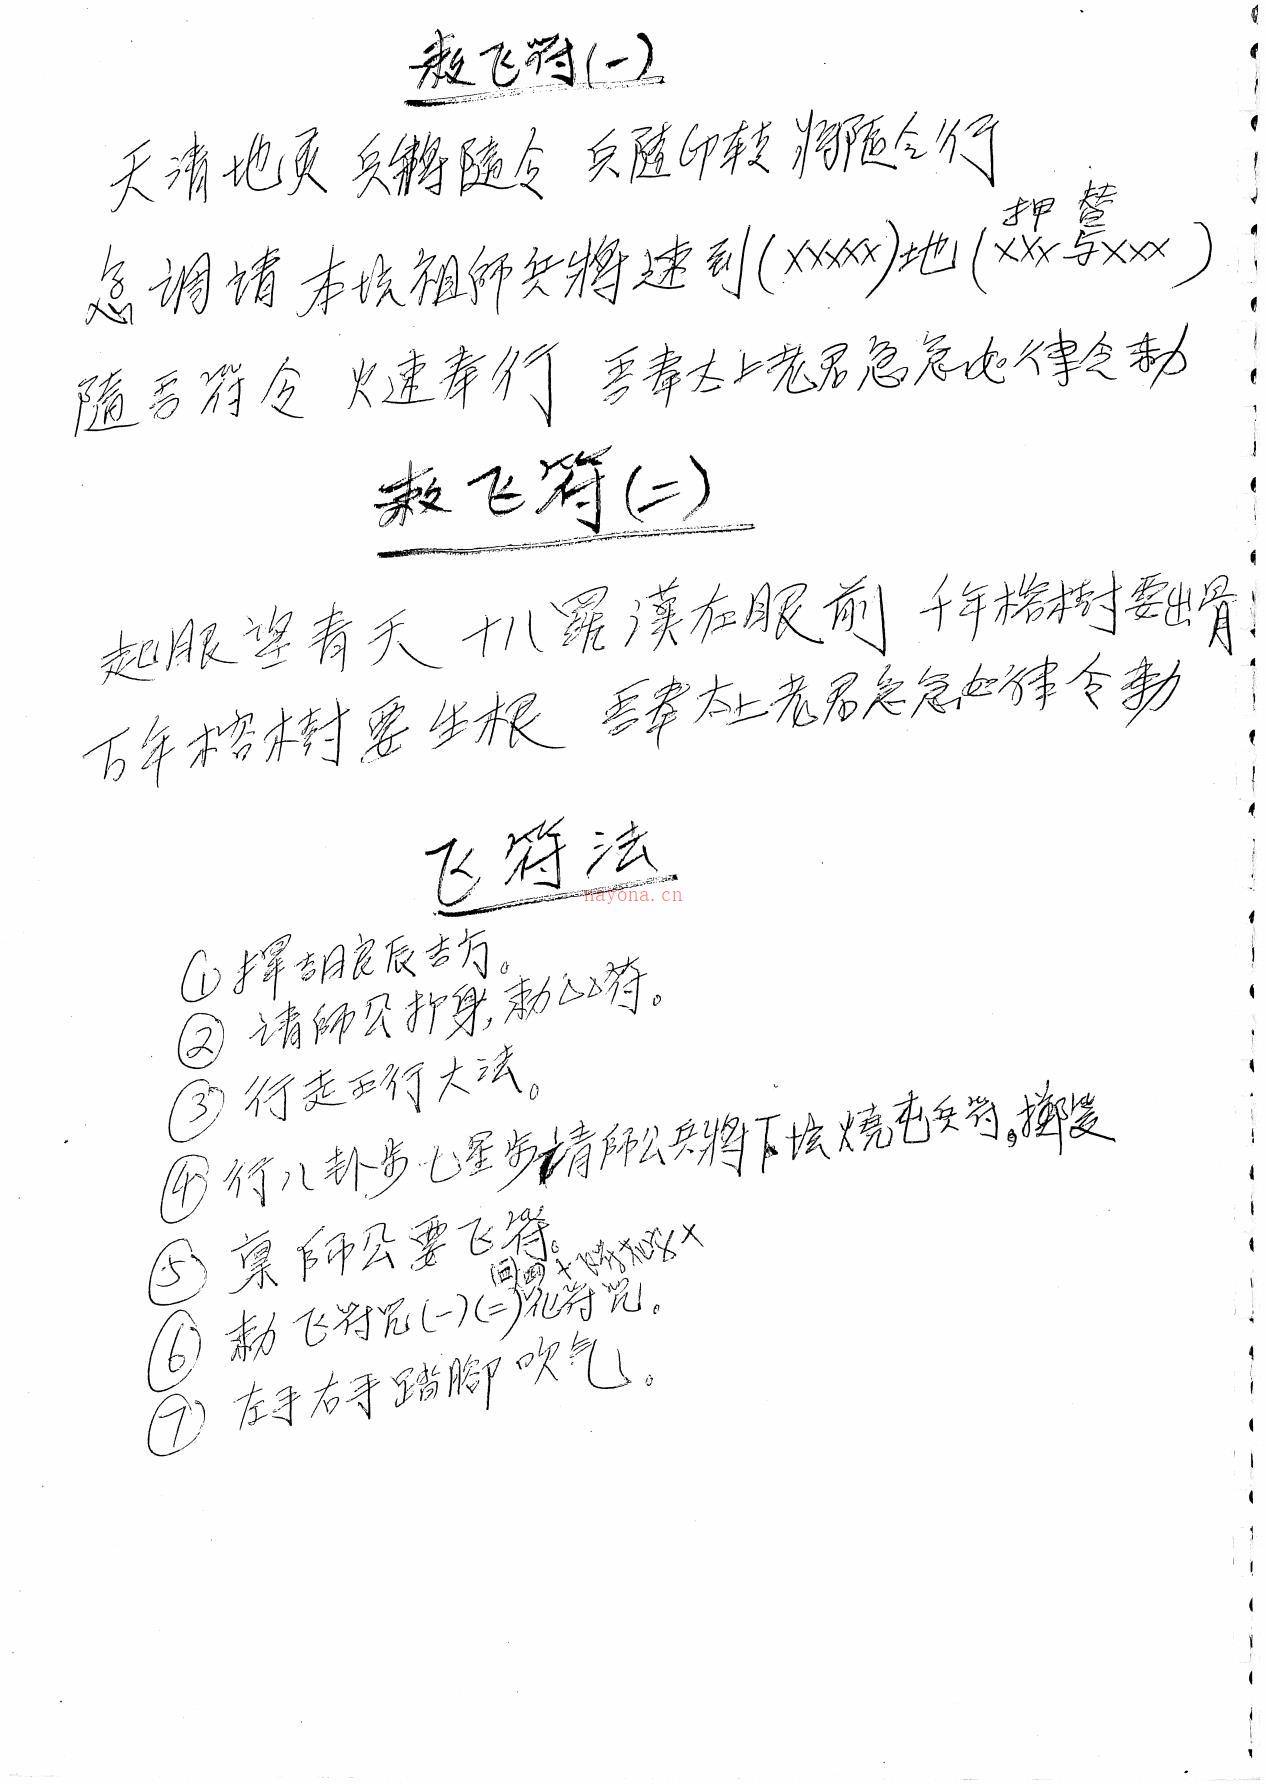 敕飞符(一)
天清地灵 兵將隨令 兵隨印转 將随令行
急调请本坛祖師兵將速到(xxxxx)地(xxx与xxx)
押 替
隨吾符令 火速奉行 吾奉太上老君急急如律令勅
敕飞符(二)
起眼望青天 十八羅漢在眼前 千年榕樹要出骨
万年榕樹要生根 吾奉太上老君急急如律令勅
飞符法
nayona.cn
① 擇 良辰吉方。
② 请師公 身,勅 符。
③ 行走五行大法。
④ 行八卦步七星步请師公兵將下坛燒屯兵符。擲筊
⑤ 稟師公要飞符。
⑥ 勅飞符咒(一)(二)化符咒。
⑦ 左手右手踏腳吹气。